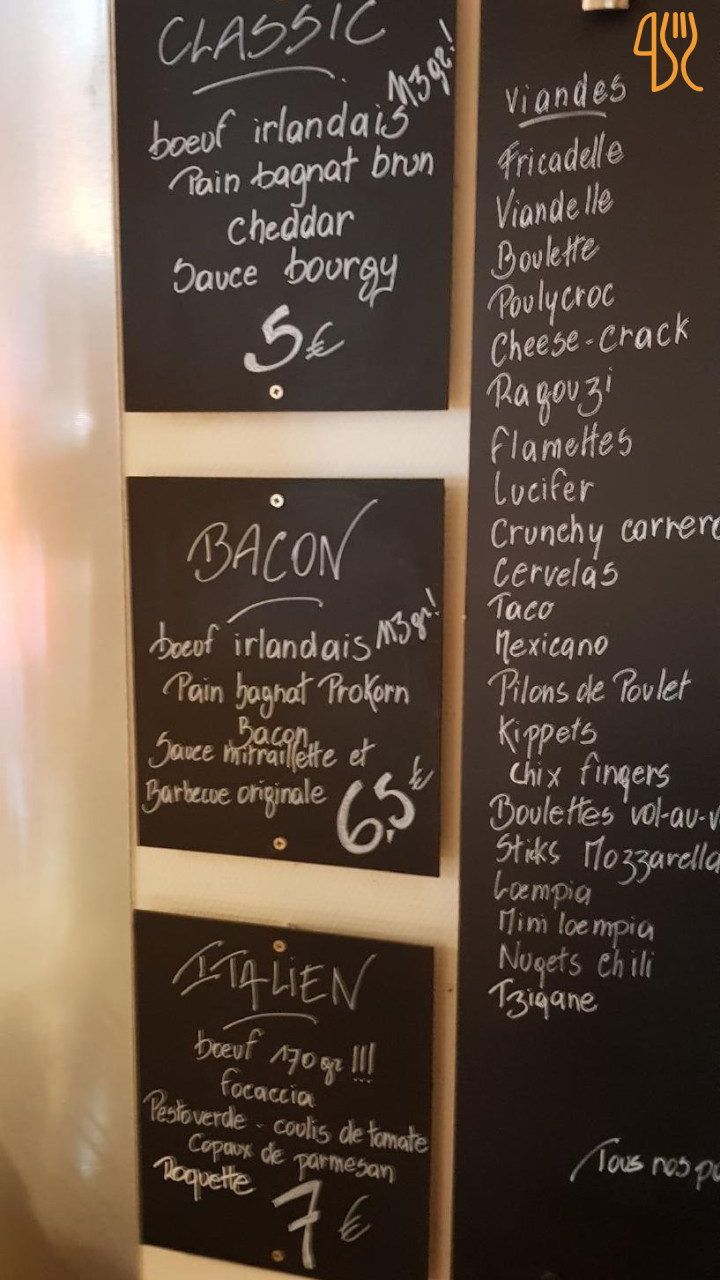 CLASSIC
113gr!
boeuf irlandais
Pain bagnat brun
Cheddar
Sauce bourgy
5€
BACON
113gr!
boeuf irlandais
Pain bagnat Prokorn
Bacon
Sauce mitraillette et
Barbecue originale
6,5€
ITALIEN
boeuf 170gr !!!
focaccia
Pesto verde - coulis de tomate
Copaux de parmesan
Roquette
7€
Viandes
Fricadelle
Viandelle
Boulette
Poulycroc
Cheese-Crack
Ragouzi
Flamettes
Lucifer
Crunchy carrero
Cervelas
Taco
Mexicano
Pilons de Poulet
Kippets
Chix fingers
Boulettes vol-au-v
Sticks Mozzarella
Loempia
Mini loempia
Nugets Chili
Tzigane
Tous nos